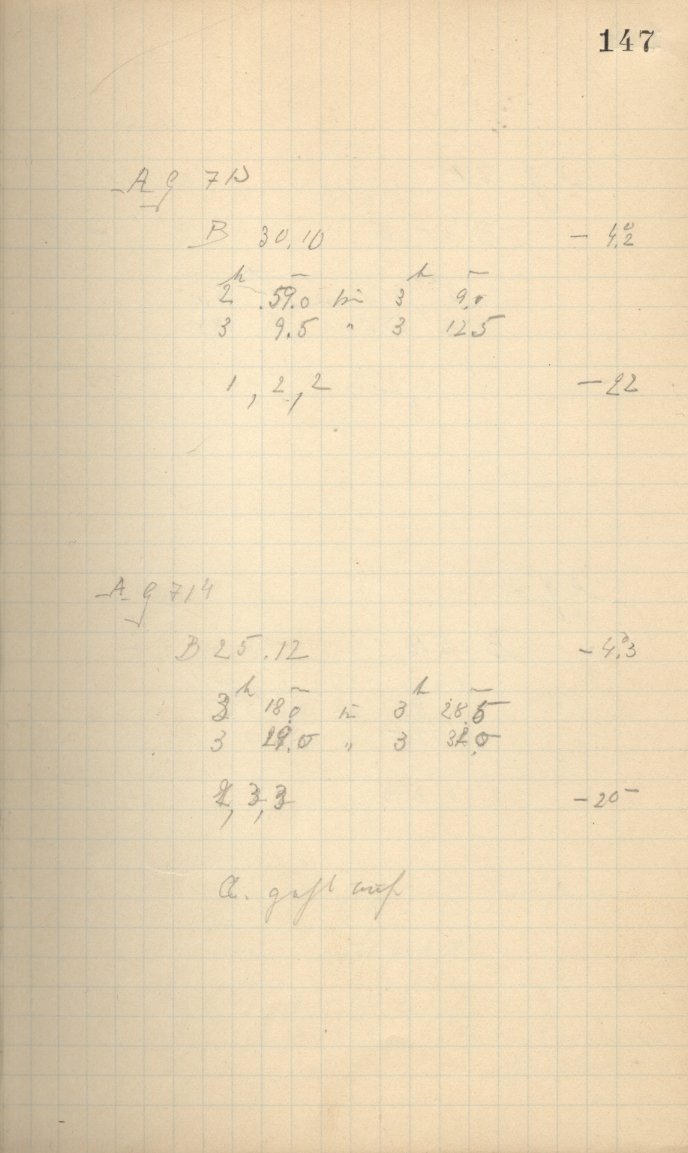 147
A g 713
B 30.10 - 4°.2
2h 59.0 bis 3h 9.0
3 9.5 " 3 12.5
1, 2, 2 - 22
A g 714
B 25.12 - 4°.3
3h 18.0 bis 3h 28.5
3 29.0 " 3 32.0
2, 3, 3 - 20